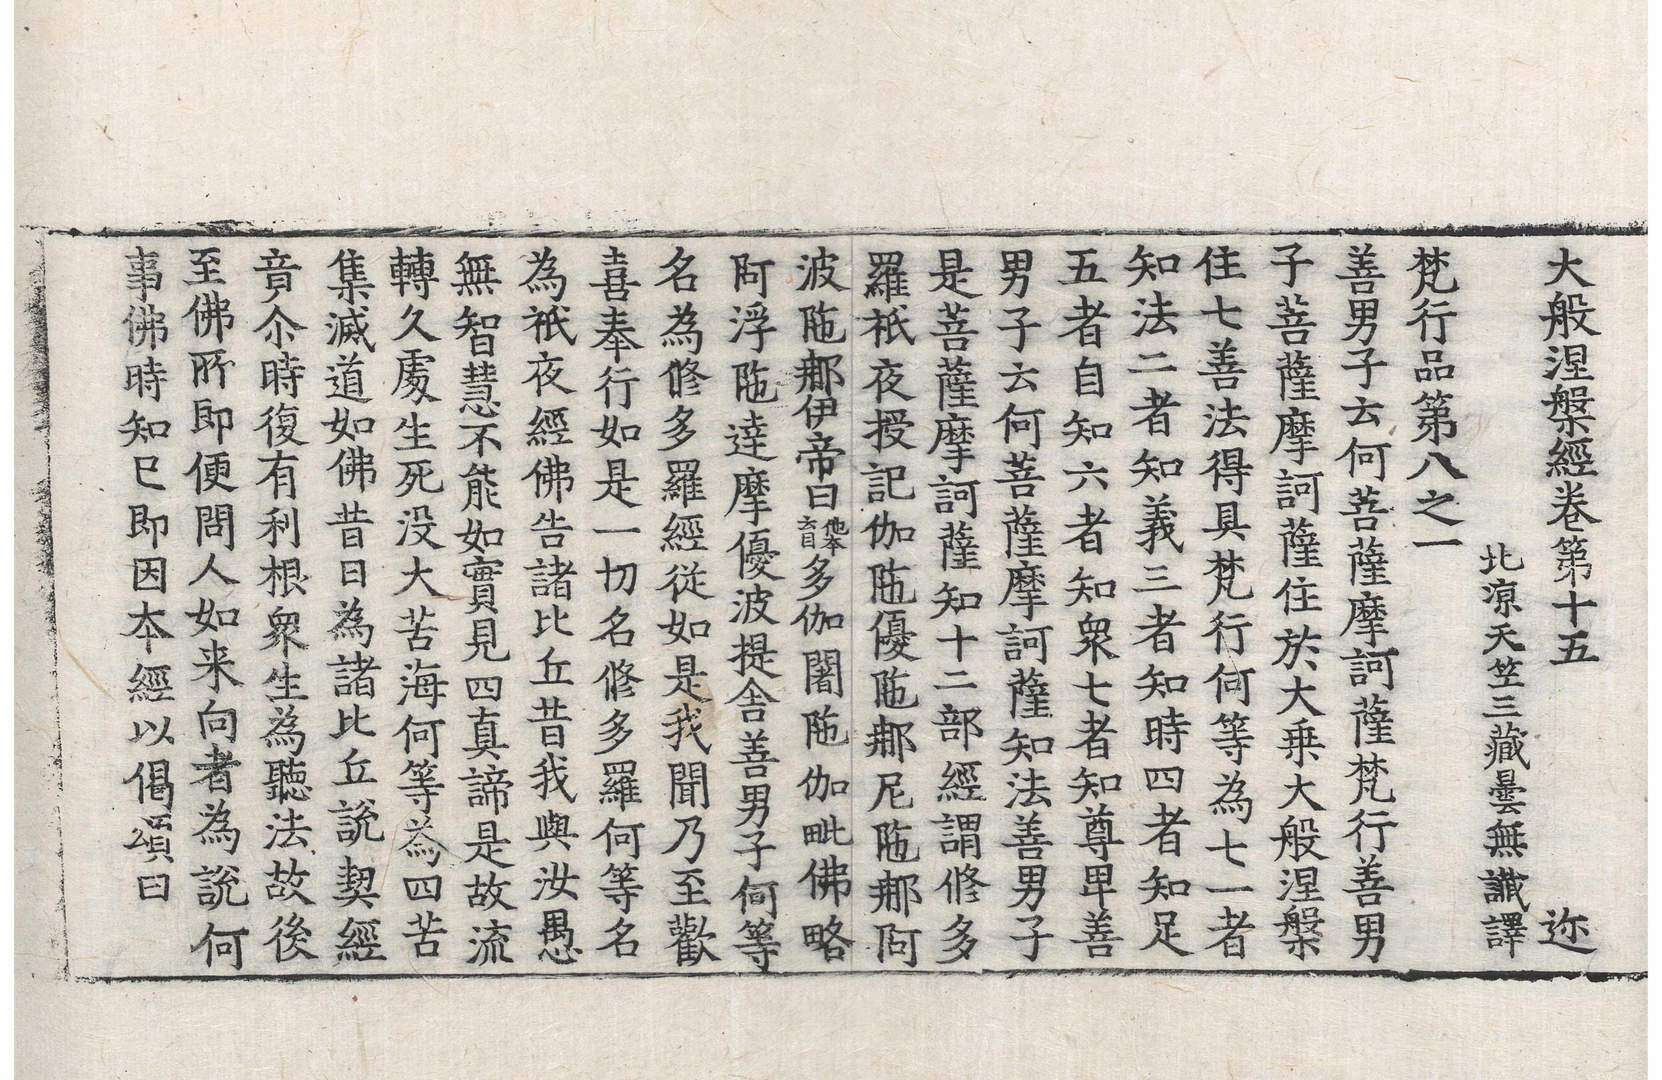 大般涅槃經卷第十五 迩
北涼天竺三藏曇無讖譯
梵行品第八之一
善男子云何菩薩摩訶薩梵行善男
子菩薩摩訶薩住於大乗大般涅槃
住七善法得具梵行何等為七一者
知法二者知義三者知時四者知足
五者自知六者知衆七者知尊卑善
男子云何菩薩摩訶薩知法善男子
是菩薩摩訶薩知十二部經謂修多
羅祇夜授記伽陁優陁那尼陁那阿
波陁那伊帝曰他本云目多伽闍陁伽毗佛略
阿浮陁達摩優波提舍善男子何等
名為修多羅經從如是我聞乃至歡
喜奉行如是一切名修多羅何等名
為祇夜經佛告諸比丘昔我與汝愚
無智慧不能如實見四真諦是故流
轉久處生死没大苦海何等為四苦
集滅道如佛昔日為諸比丘說契經
竟尒時復有利根衆生為聽法故後
至佛所即便問人如来向者為說何
事佛時知已即因本經以偈頌曰